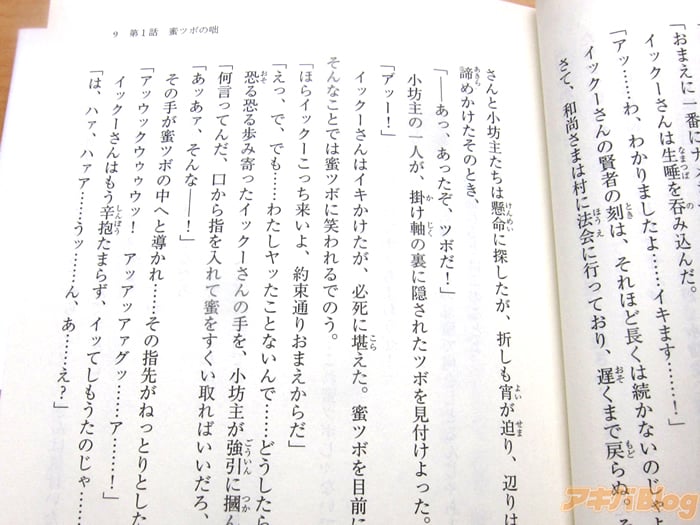 「おまえに一番に
イックーさんは生唾を呑み込んだ。
「アッ……わ、わかりましたよ……イキます……！」
イックーさんの賢者の刻は、それほど長くは続かないのじゃよ
さて、和尚さまは村に法会に行っており、遅くまで戻らぬ。
9 第1話 蜜ツボの咄
さんと小坊主たちは懸命に探したが、折しも宵が迫り、辺りは
諦めかけたそのとき、
「――あっ、あったぞ、ツボだ！」
小坊主の一人が、掛け軸の裏に隠されたツボを見付けよった。
「アッー！」
イックーさんはイキかけたが、必死に堪えた。蜜ツボを目前に
そんなことでは蜜ツボに笑われるでのう。
「ほらイックーこっち来いよ、約束通りおまえからだ」
「えっ、で、でも……わたしヤッたことないんで……どうしたら
恐る恐る歩み寄ったイックーさんの手を、小坊主が強引に摑ん
「何言ってんだ、口から指を入れて蜜をすくい取ればいいだろ、
「あッあァ、そんな――！」
その手が蜜ツボの中へと導かれ……その指先がねっとりとした
「アッウックウゥゥウッ！　アッアッアァグッ……ア……！」
イックーさんはもう辛抱たまらず、イッてしもうたのじゃ……
「は、ハァ、ハァア……うッ……ん、あ……え？」
アキバBlog